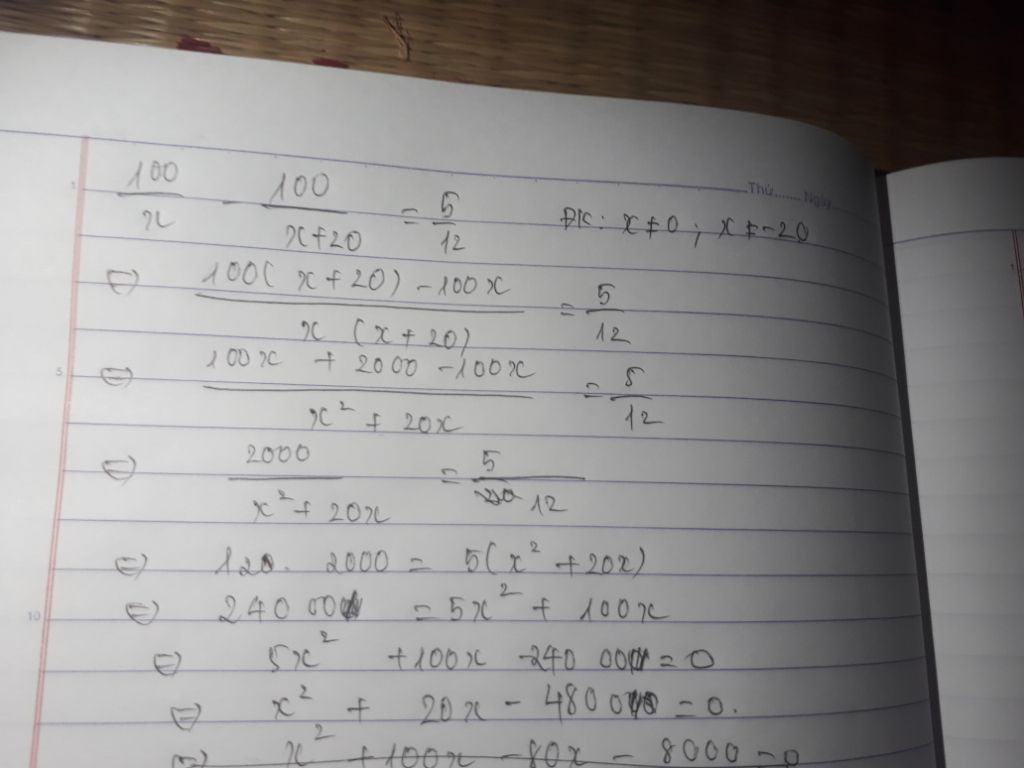 Thứ...... Ngày
100/x - 100/(x+20) = 5/12 ĐK: x ≠ 0 ; x ≠ -20
⇔ (100(x+20) - 100x)/(x(x+20)) = 5/12
⇔ (100x + 2000 - 100x)/(x² + 20x) = 5/12
⇔ 2000/(x² + 20x) = 5/12
⇔ 12. 2000 = 5(x² + 20x)
⇔ 24000 = 5x² + 100x
⇔ 5x² + 100x - 24000 = 0
⇔ x² + 20x - 4800 = 0.
⇔ x² + 100x - 80x - 8000 = 0